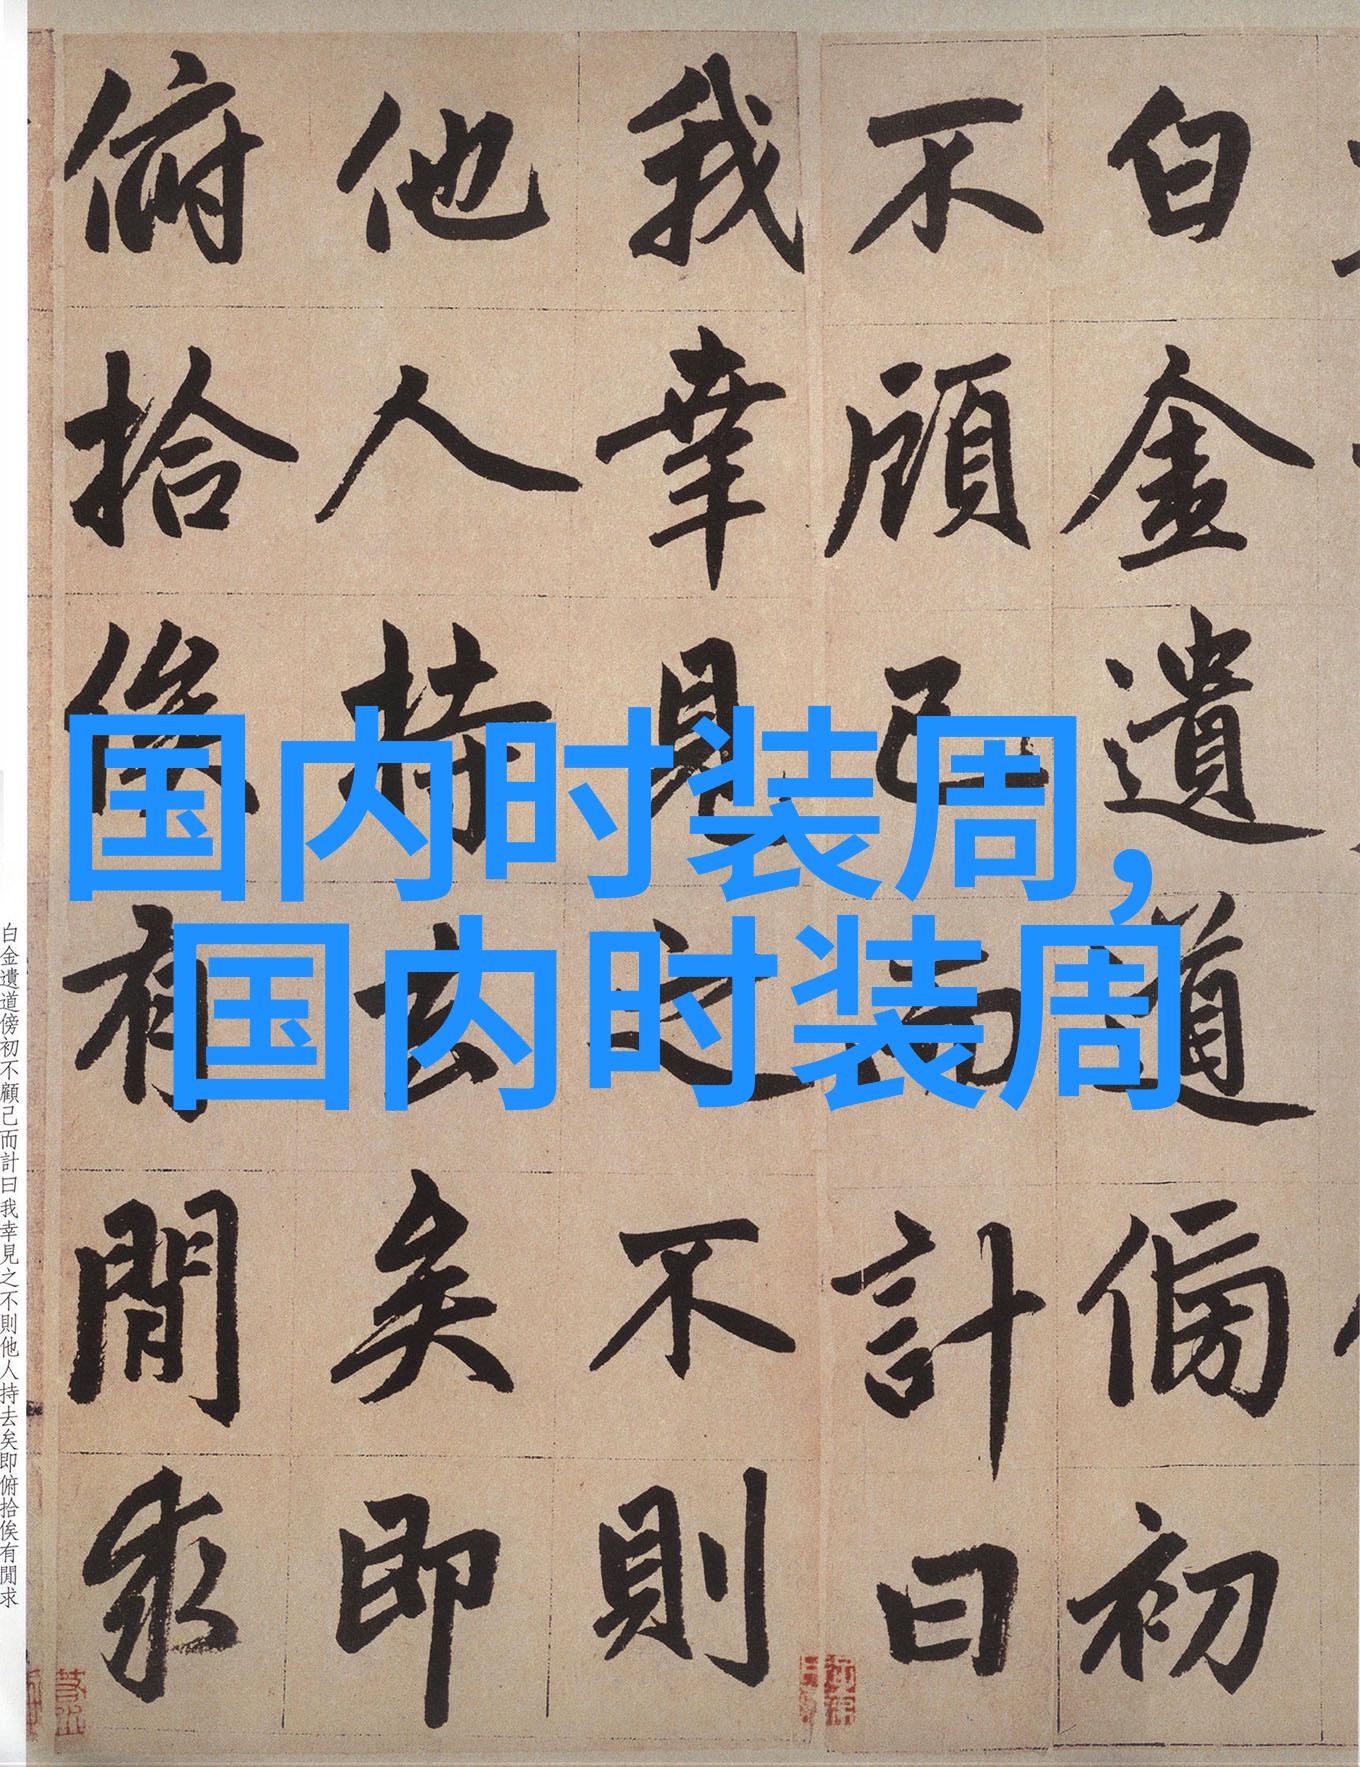 白金遺道傍初
不顧己而計曰
我幸見之不則
他人持去矣即
俯拾俟有閒求
国内时装周，
国内时装周
白金遺道傍初不顧己而計曰我幸見之不則他人持去矣即俯拾俟有閒求